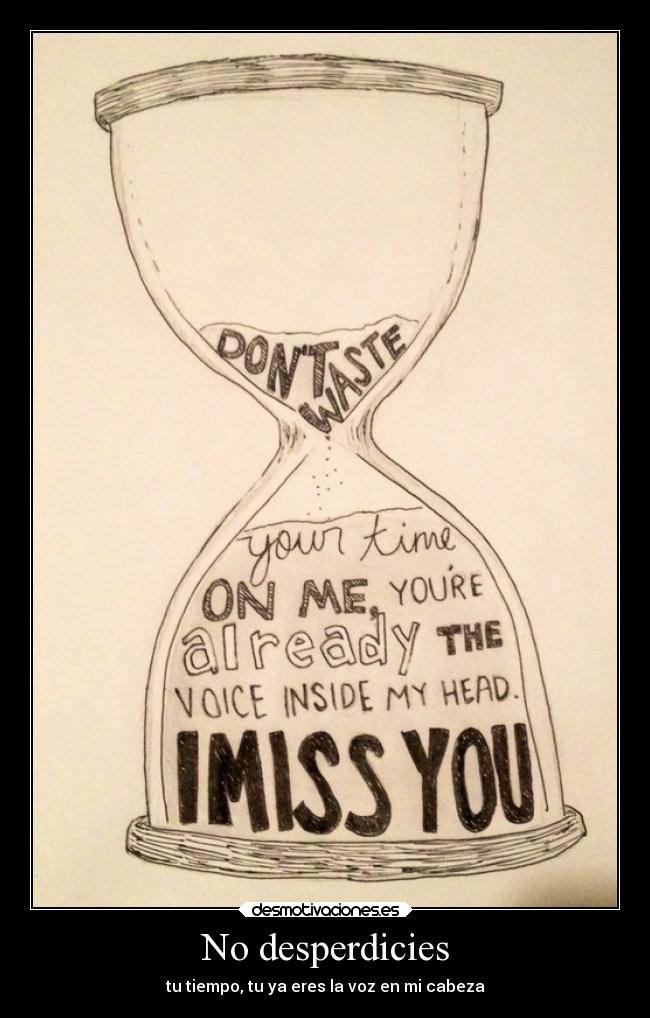 DON'T
WASTE
your time
ON ME, YOU'RE
already THE
VOICE INSIDE MY HEAD.
I MISS YOU
desmotivaciones.es
No desperdicies
tu tiempo, tu ya eres la voz en mi cabeza